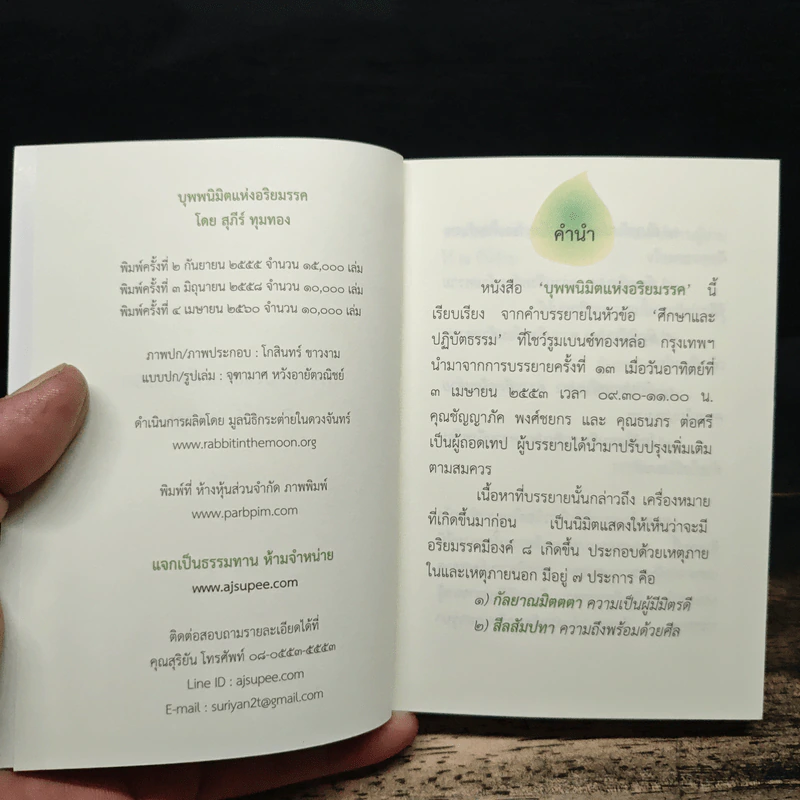 บุพพนิมิตแห่งอริยมรรค
โดย สุภีร์ ทุมทอง
พิมพ์ครั้งที่ ๒ กันยายน ๒๕๕๕ จำนวน ๑๕,๐๐๐ เล่ม
พิมพ์ครั้งที่ ๓ มิถุนายน ๒๕๕๘ จำนวน ๑๐,๐๐๐ เล่ม
พิมพ์ครั้งที่ ๔ เมษายน ๒๕๖๐ จำนวน ๑๐,๐๐๐ เล่ม
ภาพปก/ภาพประกอบ : โกสินทร์ ขาวงาม
แบบปก/รูปเล่ม : จุฑามาศ หวังอายัตวณิชย์
ดำเนินการผลิตโดย มูลนิธิกระต่ายในดวงจันทร์
www.rabbitinthemoon.org
พิมพ์ที่ ห้างหุ้นส่วนจำกัด ภาพพิมพ์
www.parbpim.com
แจกเป็นธรรมทาน ห้ามจำหน่าย
www.ajsupee.com
ติดต่อสอบถามรายละเอียดได้ที่
คุณสุริยัน โทรศัพท์ ๐๘-๐๕๕๓-๕๕๕๓
Line ID : ajsupee.com
E-mail : suriyan2t@gmail.com
คำนำ
หนังสือ ‘บุพพนิมิตแห่งอริยมรรค’ นี้
เรียบเรียง จากคำบรรยายในหัวข้อ ‘ศึกษาและ
ปฏิบัตธรรม’ ที่โชว์รูมเบนซ์ทองหล่อ กรุงเทพฯ
นำมาจากการบรรยายครั้งที่ ๑๓ เมื่อวันอาทิตย์ที่
๓ เมษายน ๒๕๕๓ เวลา ๐๙.๓๐-๑๑.๐๐ น.
คุณชัญญาภัค พงศ์ชยกร และ คุณธนภร ต่อศรี
เป็นผู้ถอดเทป ผู้บรรยายได้นำมาปรับปรุงเพิ่มเติม
ตามสมควร
เนื้อหาที่บรรยายนั้นกล่าวถึง เครื่องหมาย
ที่เกิดขึ้นมาก่อน เป็นนิมิตแสดงให้เห็นว่าจะมี
อริยมรรคมีองค์ ๘ เกิดขึ้น ประกอบด้วยเหตุภาย
ในและเหตุภายนอก มีอยู่ ๗ ประการ คือ
๑) กัลยาณมิตตตา ความเป็นผู้มีมิตรดี
๒) สีลสัมปทา ความถึงพร้อมด้วยศีล